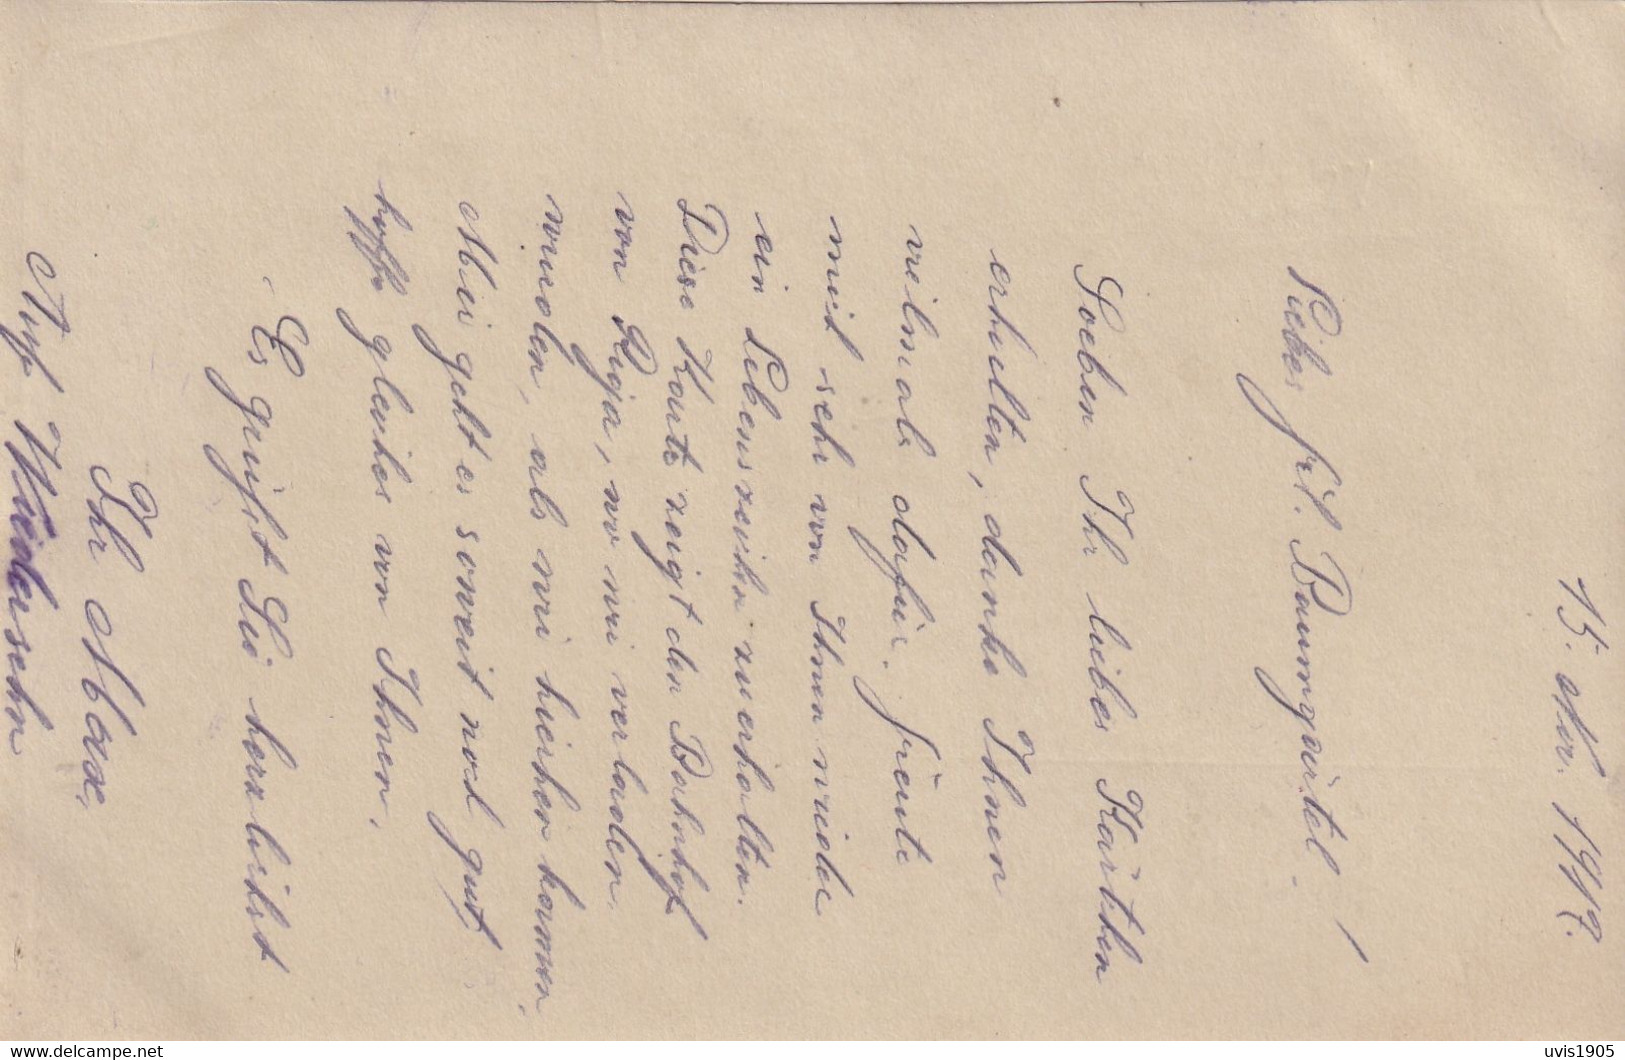 15. Nov. 1917.
Liebes Frl. Baumgärtel!
Soeben Ihr liebes Kärtchen
erhalten, danke Ihnen
vielmals dafür. Freute
mich sehr von Ihnen wieder
ein Lebenszeichen zu erhalten.
Diese Karte zeigt den Bahnhof
von Riga, wo wir verladen
wurden, als wir hierher kamen.
Mir geht es soweit noch gut
hoffe gleiches von Ihnen.
Es grüßt Sie herzlichst
Ihr Max.
Auf Wiedersehn
www.delcampe.net
uvis1905